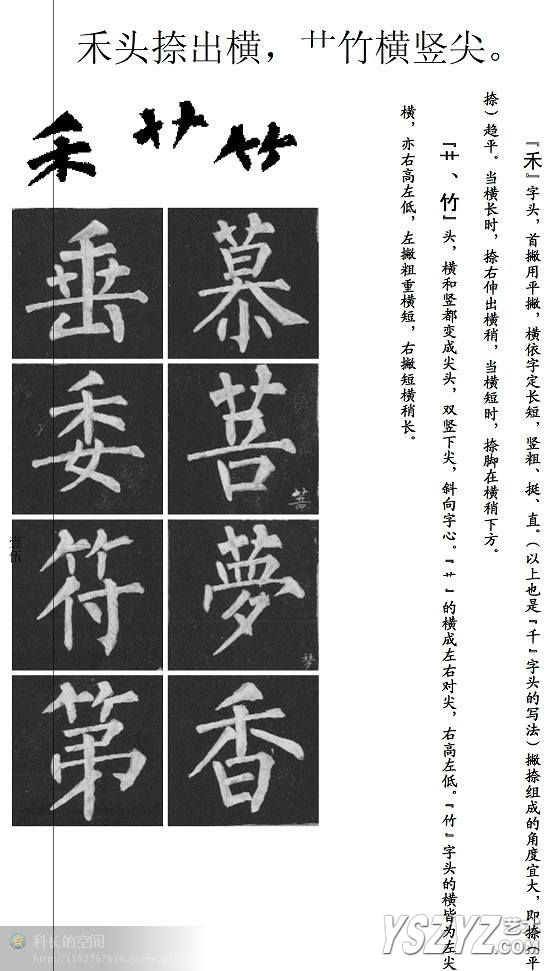 禾头捺出横，艹竹横竖尖。
『禾』字头，首撇用平撇，横依字定长短，竖粗、挺、直。（以上也是『千』字头的写法）撇捺组成的角度宜大，即捺（平
捺）趋平。当横长时，捺右伸出横稍，当横短时，捺脚在横稍下方。
『艹、竹』头，横和竖都变成尖头，双竖下尖，斜向字心。『艹』的横成左右对尖，右高左低。『竹』字头的横皆为左尖
横，亦右高左低，左撇粗重横短，右撇短横稍长。
禾 艹 竹
慕
菩
菩
夢
梦
香
垂
委
符
第
壹伍
科长的空间
http://1193767616.qzone.qq.com
YSZYZ艺术
.COM